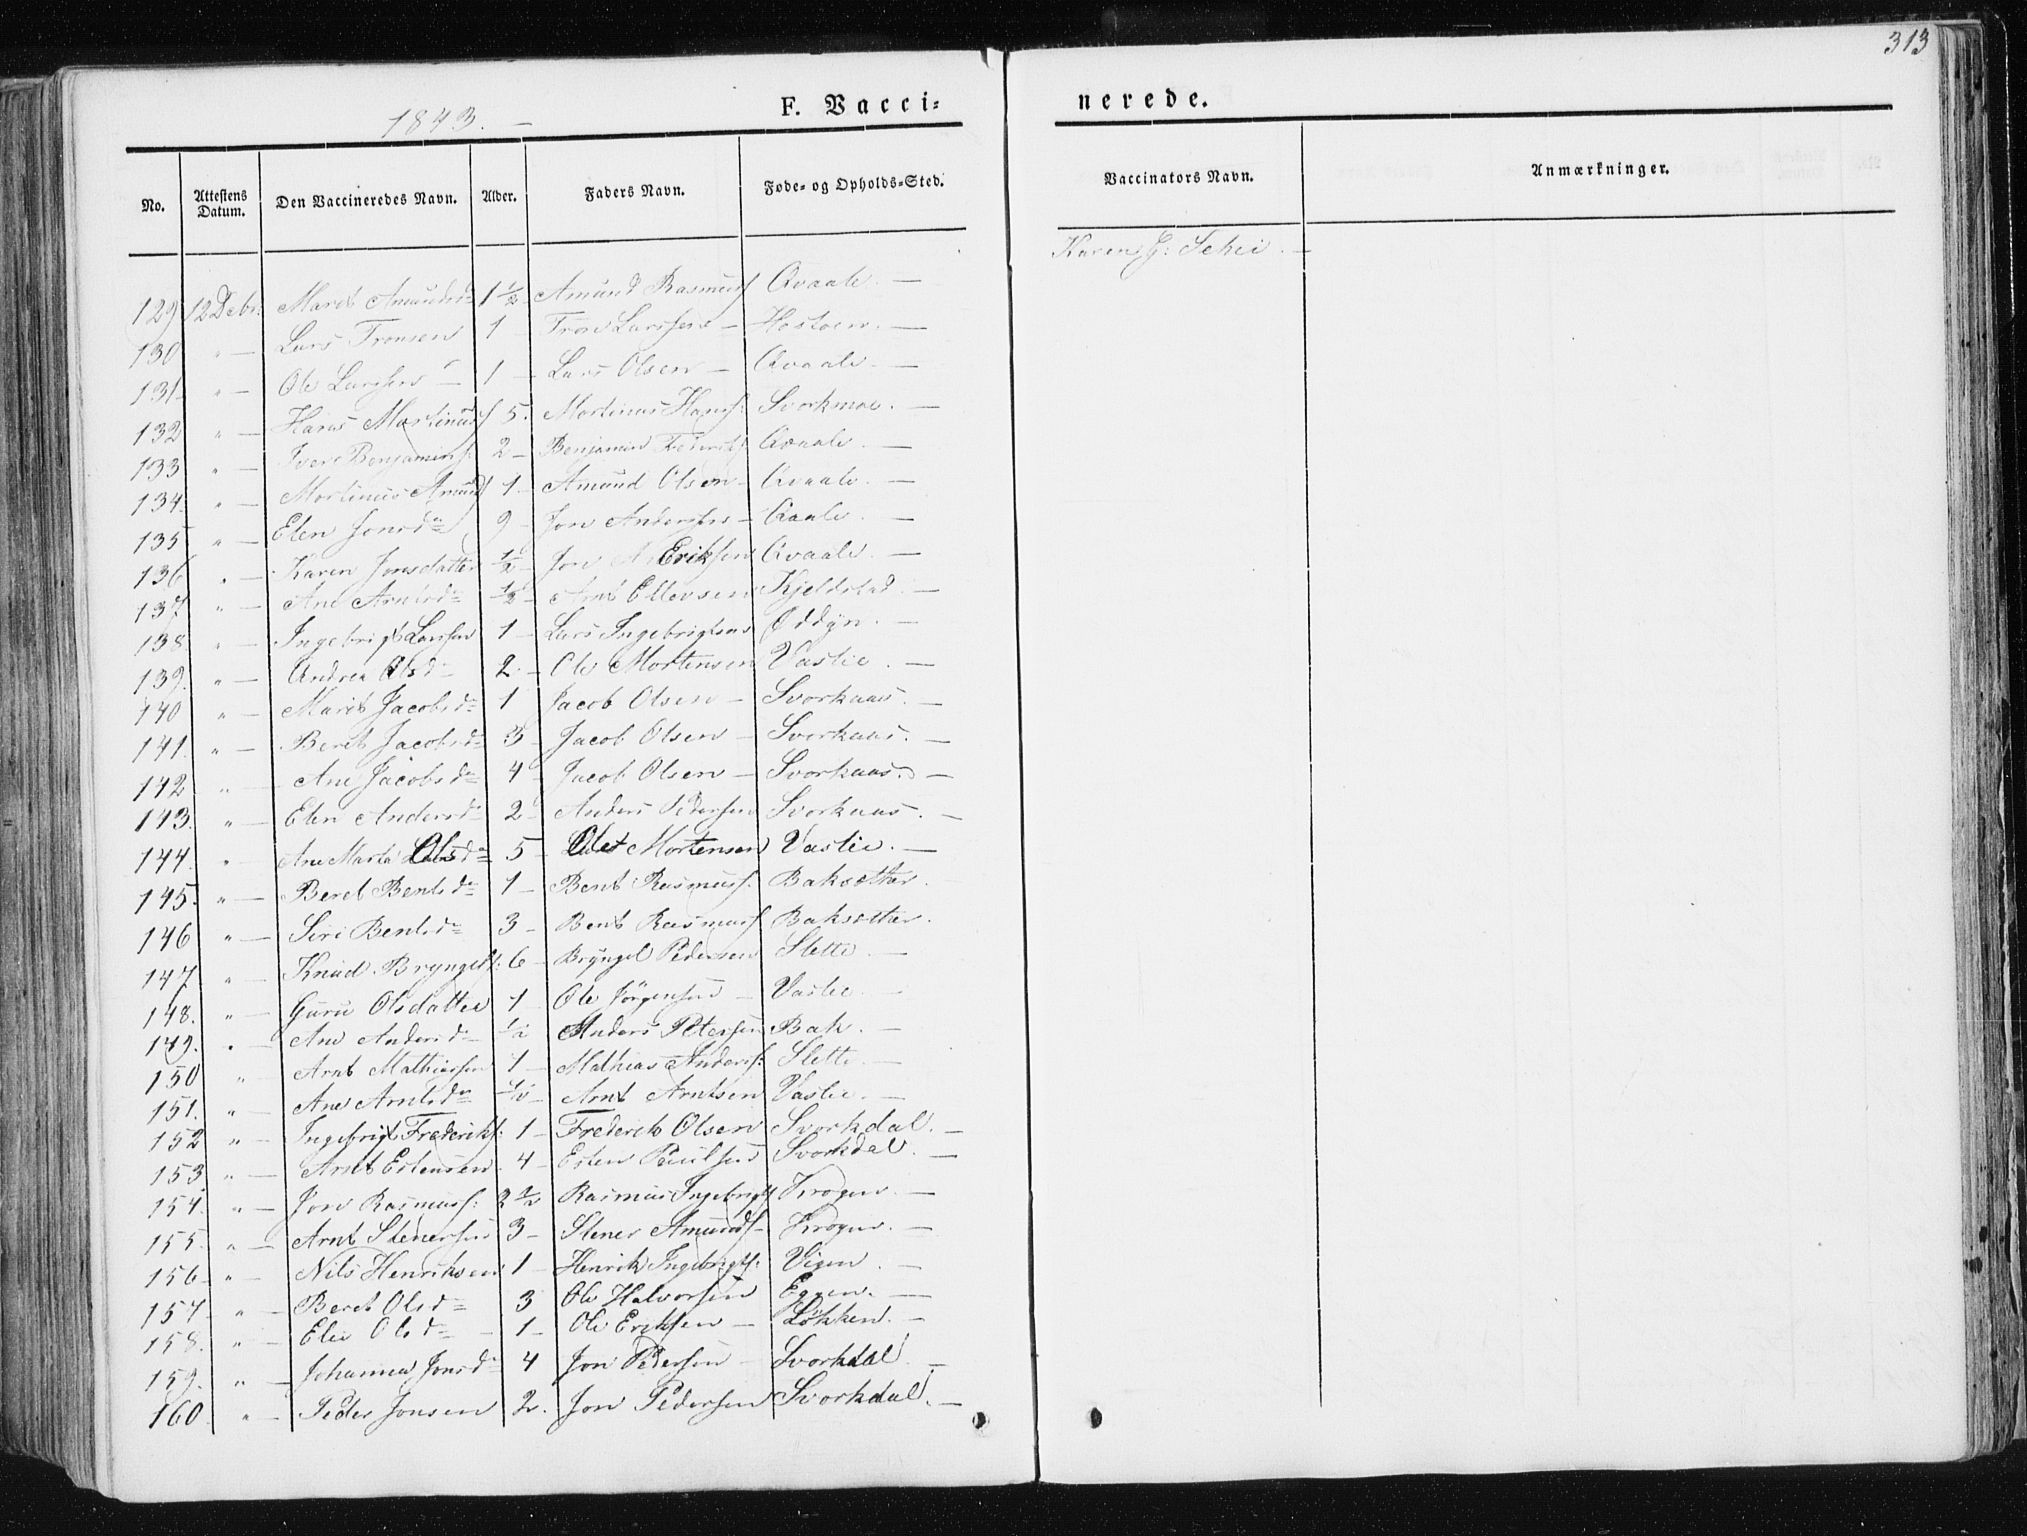 313
1843. —
F. Vacci= nerede.
No. | Attestens Datum. | Den Vaccineredes Navn. | Alder. | Faders Navn. | Føde- og Opholds-Sted. | Vaccinators Navn. | Anmærkninger.
129 | 12 Debr: | Marit Amundsd | 1½ | Amund Rasmuss | Qvaale. — | Karen G: Schei. —
130 | " — | Lars Tronsen | 1 — | Tron Larssen — | Hostoen. —
131 | " — | Ole Larssen — | 1 — | Lars Olsen — | Qvaale. —
132 | " — | Hans Martinus | 5. | Martinus Hans: | Svorkmoe. —
133 | " — | Iver Benjamins: | 2 — | Benjamin | Qvaale. —
134. | " — | Martinus Amund | 1. | Amund Olsen — | Qvaale. —
135 | " — | Elen Jonsdr | 9 — | Jon Anderssen — | Qvaale. —
136 | " — | Karen Jonsdatter | ½ | Jon Eriksen | Qvaale. —
137 | " — | Ane Arntsdr | ½ | Arnt Ellevsen | Kjeldstad. —
138. | " — | Ingebrigt Larssen | 1 — | Lars Ingebrigtsen | Oddyn. —
139. | " — | Andrea Olsd — | 2. — | Ole Mortensen | Vaslie. —
140 | " — | Marit Jacobsdr | 1 | Jacob Olsen — | Svorkaas. —
141. | " — | Beret Jacobsdr | 3 — | Jacob Olsen — | Svorkaas. —
142 | " — | Ane Jacobsdr | 4 — | Jacob Olsen — | Svorkaas. —
143. | " — | Elen Andersdr | 2 | Anders Pedersen | Svorkaas. —
144. | " — | Ane Marta Olsdr | 5 — | Ole Mortensen | Vaslie. —
145. | " — | Beret Bentsdr | 1 — | Bent Rasmuss: | Baksætter.
146 | " — | Siri Bentsdr | 3 — | Bent Rasmuss | Baksætter.
147 | " — | Knud Bryngels: | 6 — | Bryngel Pedersen | Slette. —
148. | " — | Guru Olsdatter | 1 — | Ole Jörgensen — | Vaslie. —
149. | " — | Ane Andersdr | ½ | Anders Petersen | Bak. —
150 | " — | Arnt Mathiassen | 1 — | Mathias Anders: | Slette. —
151. | " — | Ane Arntsdr | ½ | Arnt Arntsen | Vaslie. —
152 | " — | Ingebrigt Frederiks: | 1 — | Frederik Olsen | Svorkdal. —
153 | " — | Arnt Estensen | 4 — | Esten Poulsen | Svorkdal. —
154. | " — | Jon Rasmuss: | 2½ | Rasmus Ingebrigts | Krogen. —
155. | " — | Arnt Stenersen | 3 — | Stener Amunds — | Krogen. —
156 | " — | Nils Henriksen | 1 — | Henrik Ingebrigts: | Vigen. —
157 | " — | Beret Olsd — | 3 | Ole Halvorsen | Eggen. —
158. | " — | Elie Olsdr — | 1 — | Ole Eriksen — | Løkken. —
159. | " — | Johanna Jonsdr | 4 | Jon Pedersen — | Svorkdal —
160. | " — | Peder Jonsen | 2. | Jon Pedersen | Svorkdal. —